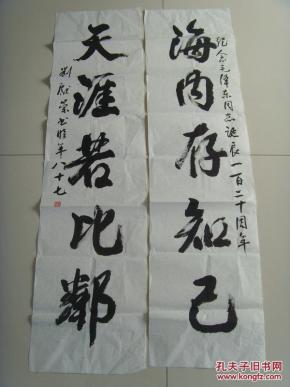 海内存知己
纪念毛泽东同志诞辰一百二十周年
天涯若比邻
荣书时年八十七
孔夫子旧书网